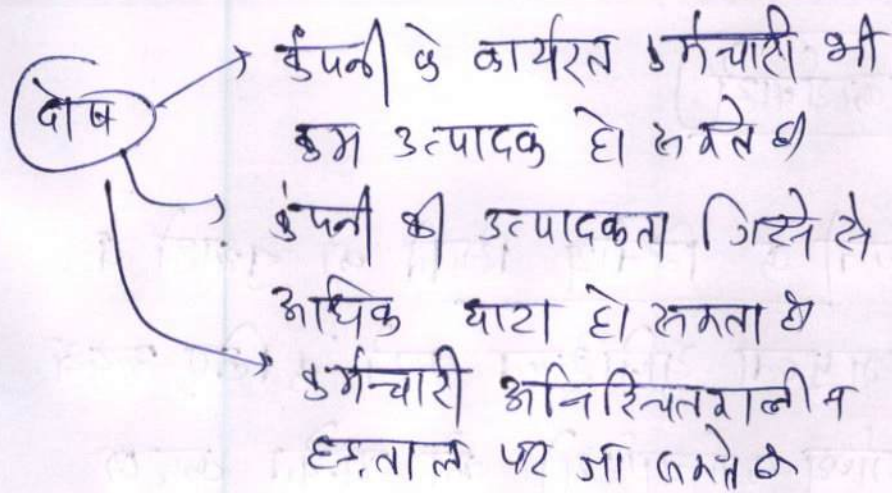 दोष
कंपनी के कार्यरत कर्मचारी भी
कम उत्पादक हो सकते है
कंपनी की उत्पादकता गिरने से
आर्थिक घाटा हो सकता है
कर्मचारी अनिश्चितकालीन
हड़ताल पर जा सकते है